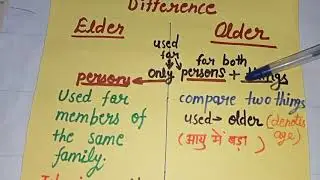 Difference
Elder
Older
used
for
only persons
for both
persons + things
Used for
members of
the same
family.
compare two things
used → older (denotes
age)
(आयु में बड़ा)